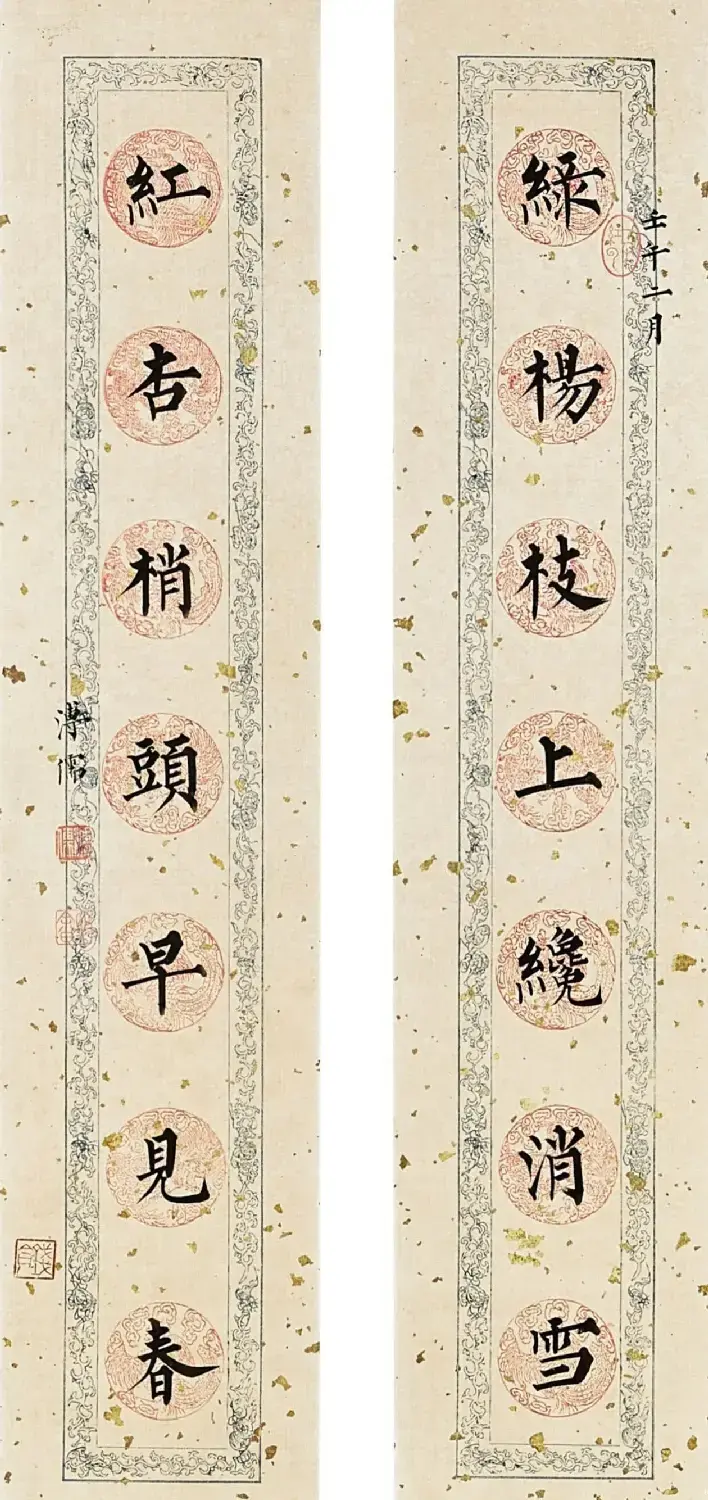 壬午二月
綠楊枝上纔消雪
紅杏梢頭早見春
溥儒